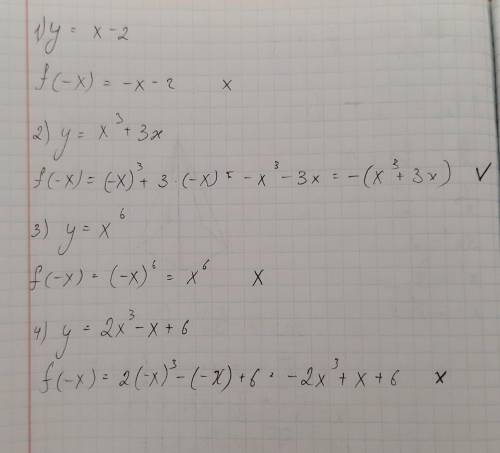 1) y = x - 2
f(-x) = -x - 2 x
2) y = x³ + 3x
f(-x) = (-x)³ + 3 · (-x) = -x³ - 3x = -(x³ + 3x) V
3) y = x⁶
f(-x) = (-x)⁶ = x⁶ X
4) y = 2x³ - x + 6
f(-x) = 2(-x)³ - (-x) + 6 = -2x³ + x + 6 x